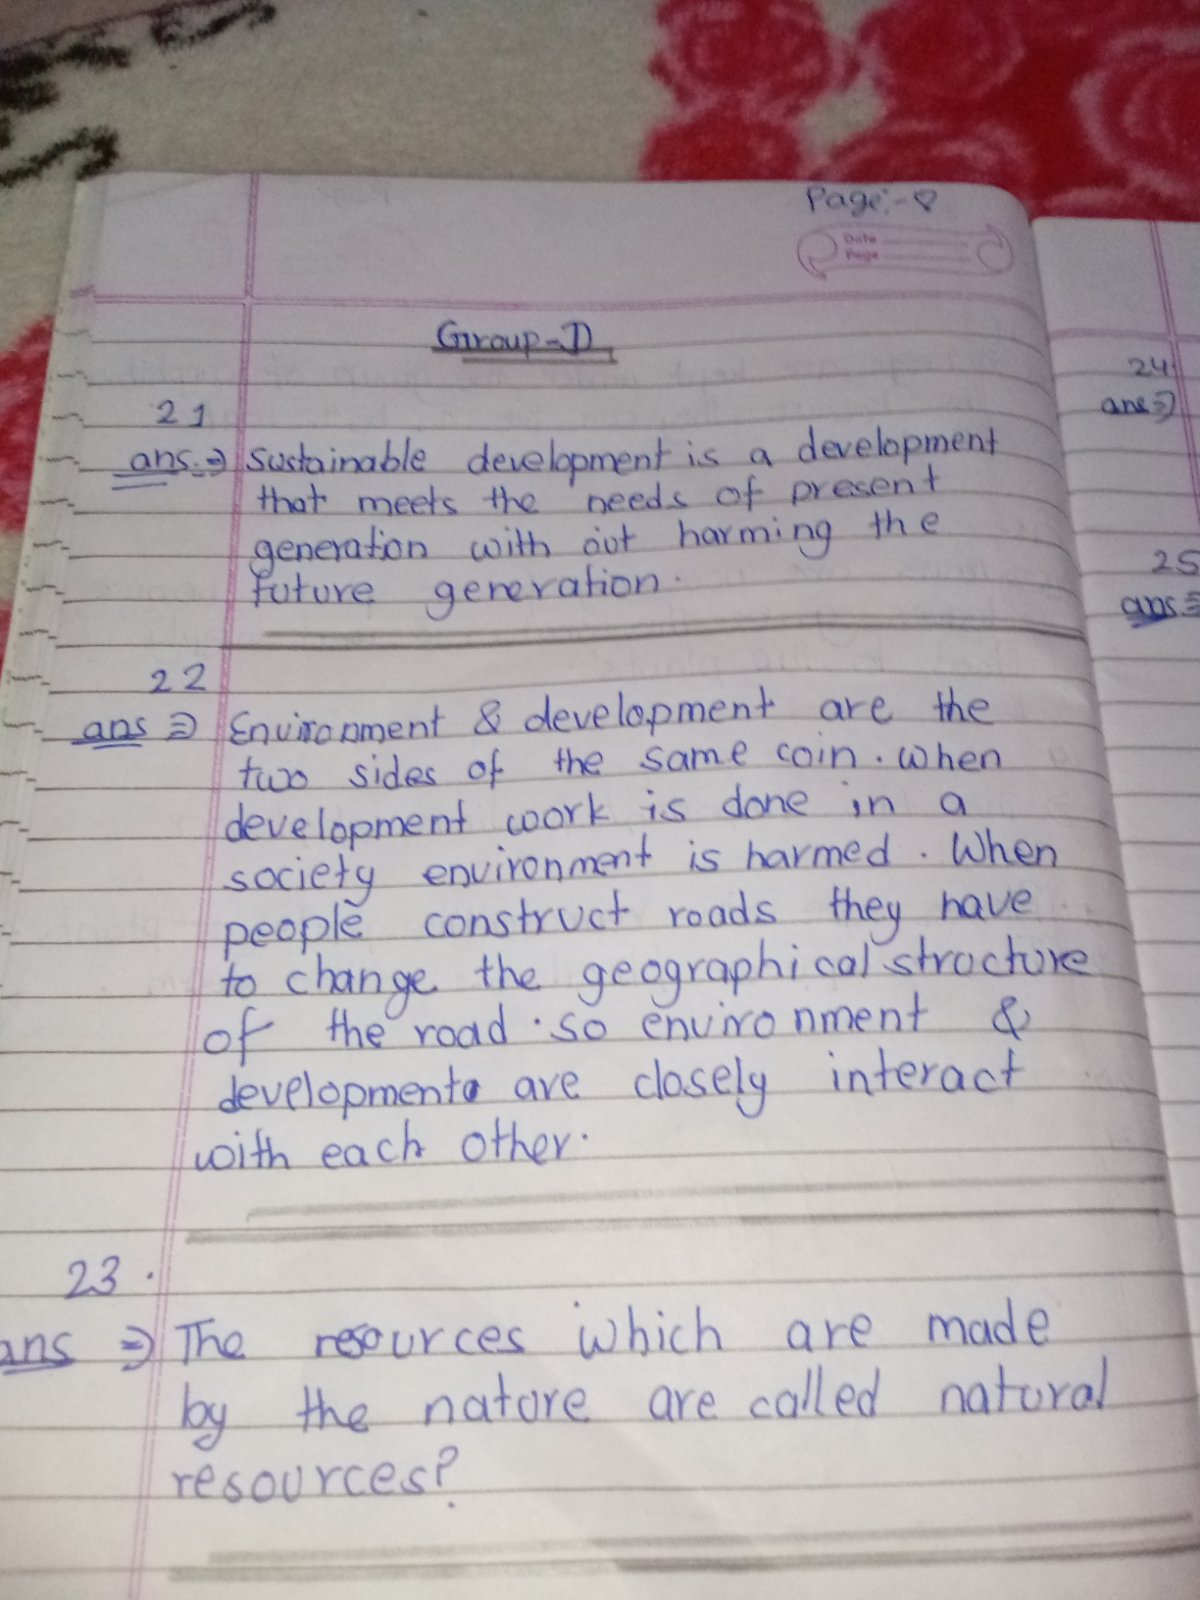 Page:- 8
Date
Page
Group-D
21
ans.⇒ Sustainable development is a development
that meets the needs of present
generation with out harming the
future generation.
22
ans ⇒ Environment & development are the
two sides of the same coin. when
development work is done in a
society environment is harmed. When
people construct roads they have
to change the geographical structure
of the road. so environment &
development are closely interact
with each other.
23.
ans ⇒ The resources which are made
by the nature are called natural
resources?
24
ans ⇒
25
ans ⇒